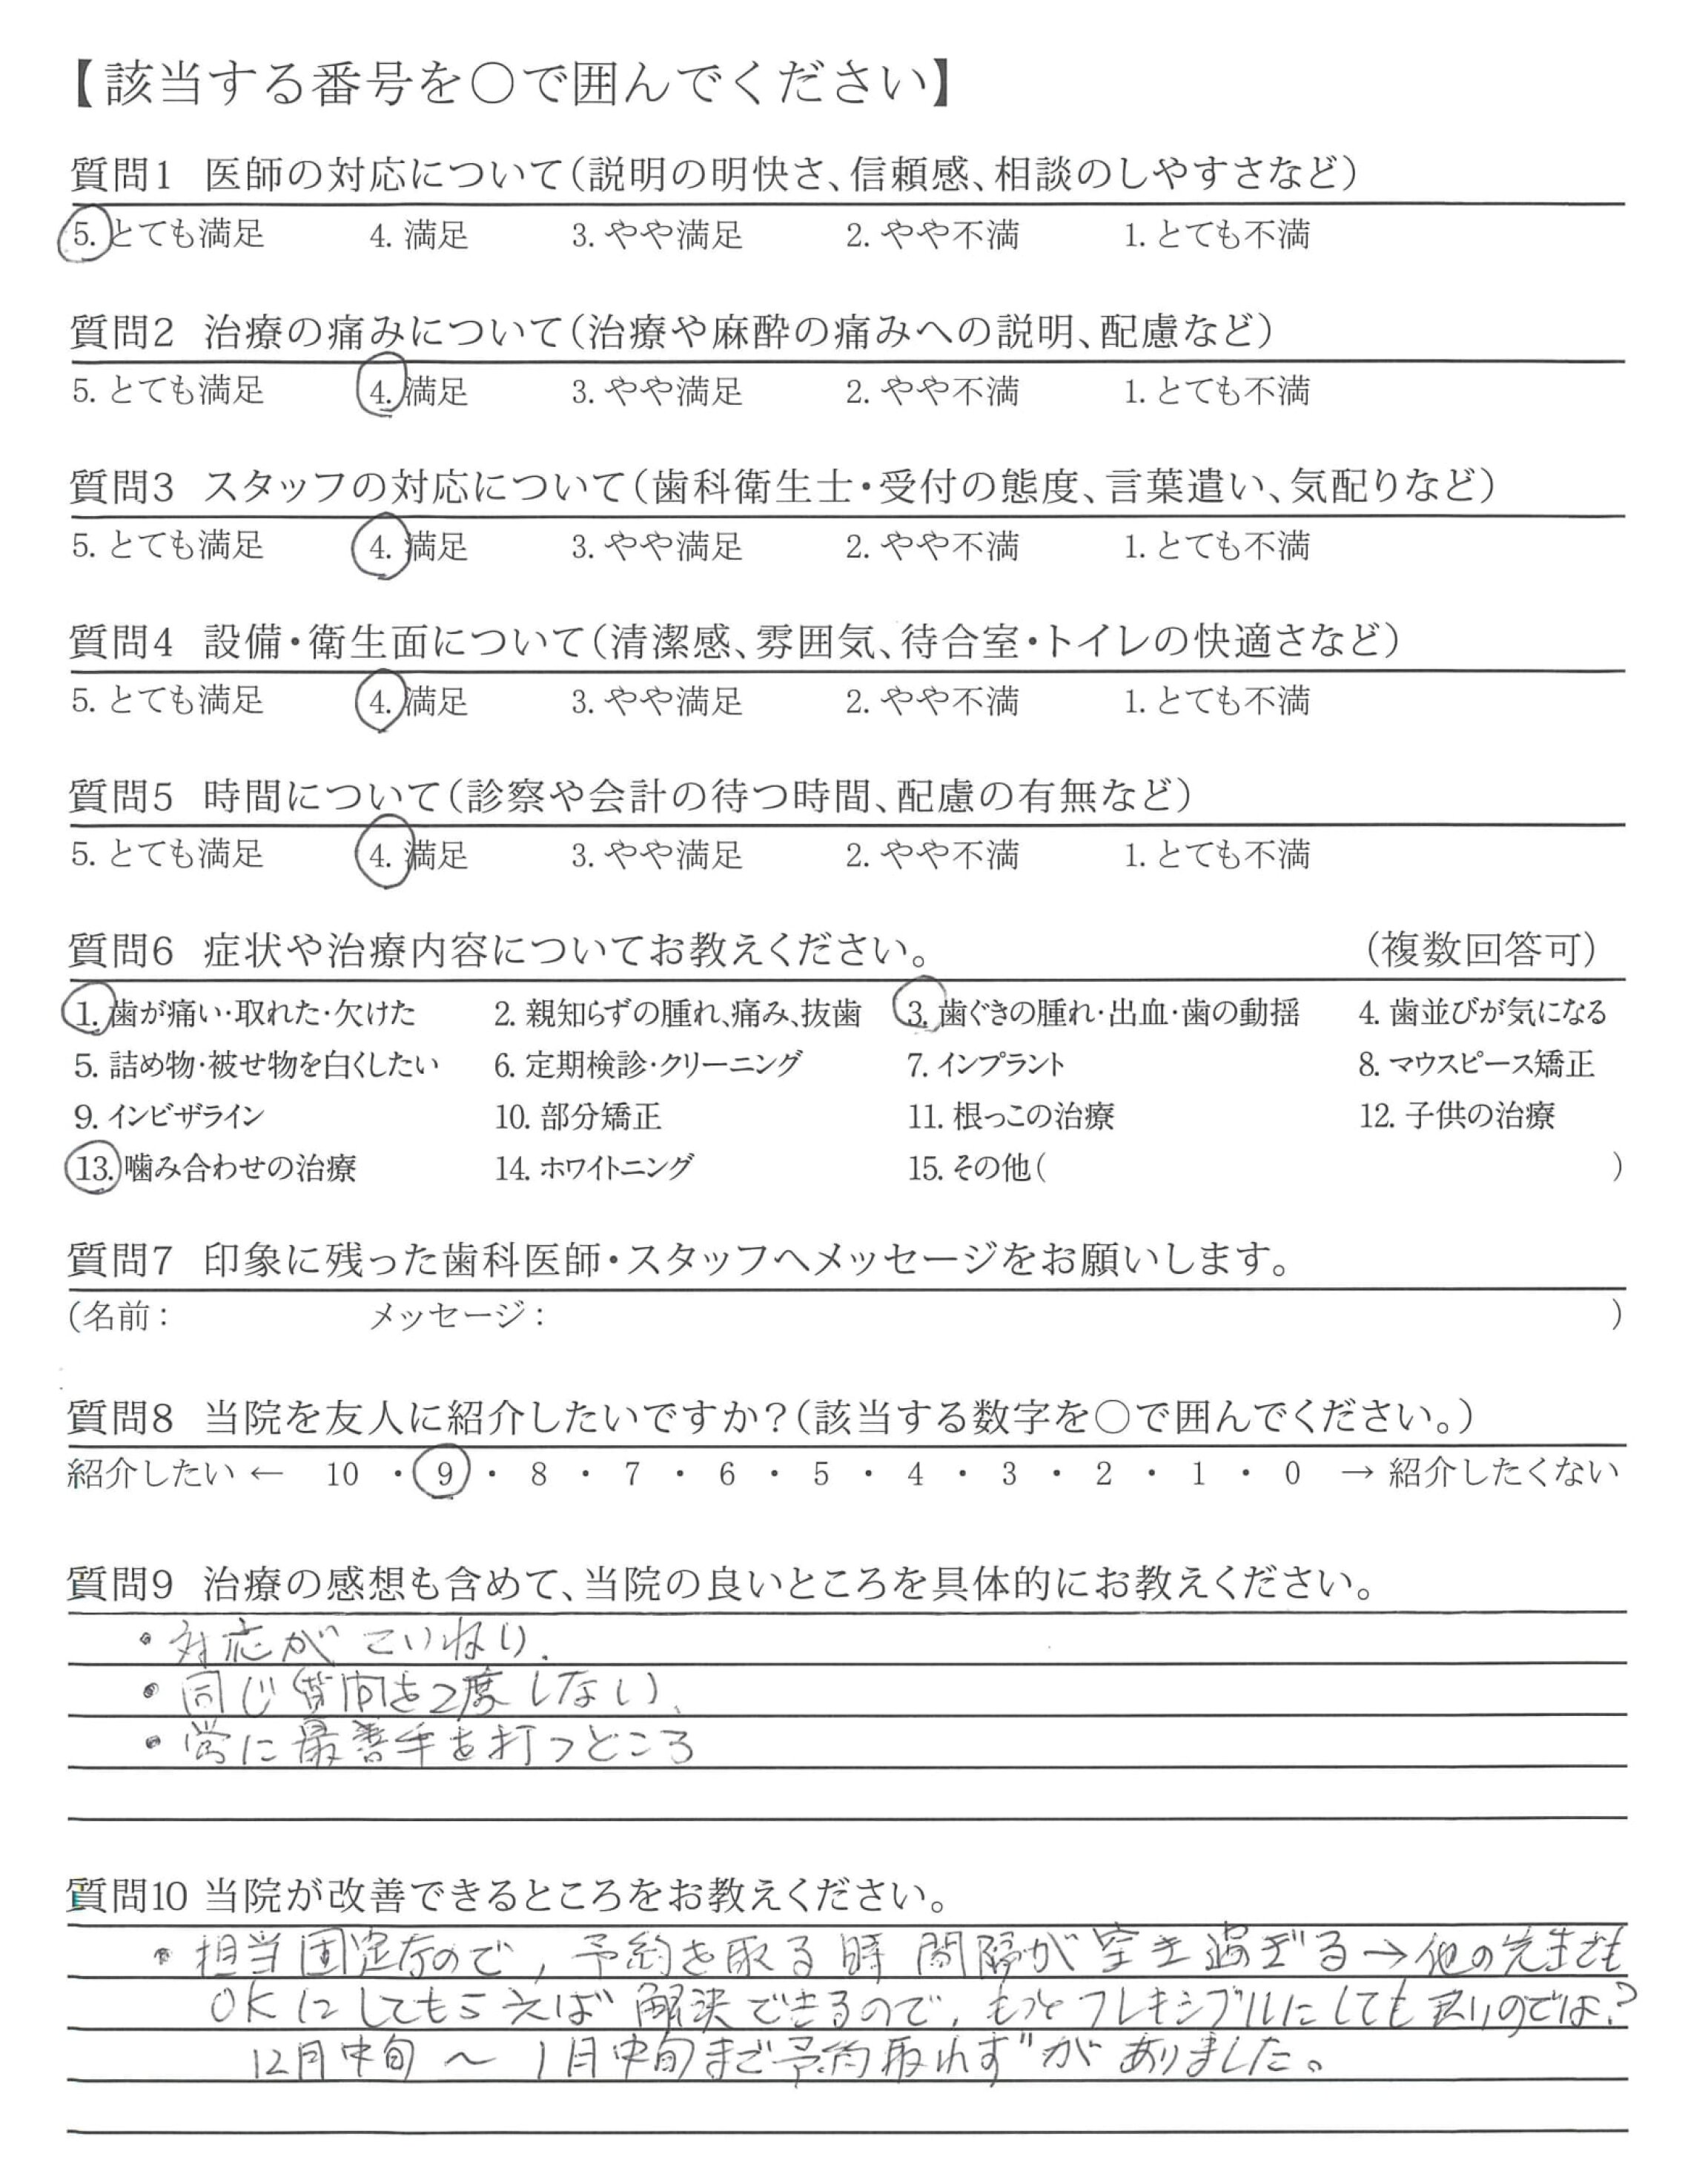 【該当する番号を○で囲んでください】
質問1 医師の対応について(説明の明快さ、信頼感、相談のしやすさなど)
5. とても満足 4. 満足 3. やや満足 2. やや不満 1. とても不満
質問2 治療の痛みについて(治療や麻酔の痛みへの説明、配慮など)
5. とても満足 4. 満足 3. やや満足 2. やや不満 1. とても不満
質問3 スタッフの対応について(歯科衛生士・受付の態度、言葉遣い、気配りなど)
5. とても満足 4. 満足 3. やや満足 2. やや不満 1. とても不満
質問4 設備・衛生面について(清潔感、雰囲気、待合室・トイレの快適さなど)
5. とても満足 4. 満足 3. やや満足 2. やや不満 1. とても不満
質問5 時間について(診察や会計の待つ時間、配慮の有無など)
5. とても満足 4. 満足 3. やや満足 2. やや不満 1. とても不満
質問6 症状や治療内容についてお教えください。 (複数回答可)
1. 歯が痛い・取れた・欠けた 2. 親知らずの腫れ、痛み、抜歯 3. 歯ぐきの腫れ・出血・歯の動揺 4. 歯並びが気になる
5. 詰め物・被せ物を白くしたい 6. 定期検診・クリーニング 7. インプラント 8. マウスピース矯正
9. インビザライン 10. 部分矯正 11. 根っこの治療 12. 子供の治療
13. 噛み合わせの治療 14. ホワイトニング 15. その他( )
質問7 印象に残った歯科医師・スタッフへメッセージをお願いします。
(名前: メッセージ: )
質問8 当院を友人に紹介したいですか?(該当する数字を○で囲んでください。)
紹介したい ← 10 ・ 9 ・ 8 ・ 7 ・ 6 ・ 5 ・ 4 ・ 3 ・ 2 ・ 1 ・ 0 → 紹介したくない
質問9 治療の感想も含めて、当院の良いところを具体的にお教えください。
・対応がていねい.
・同じ質問を2度しない、
・常に最善手を打つところ
質問10 当院が改善できるところをお教えください。
・担当固定なので, 予約を取る時 間隔が空き過ぎる→他の先生でも
OKにしてもらえば 解決できるので, もっとフレキシブルにしても良いのでは?
12月中旬 〜 1月中旬まで予約取れず"がありました。